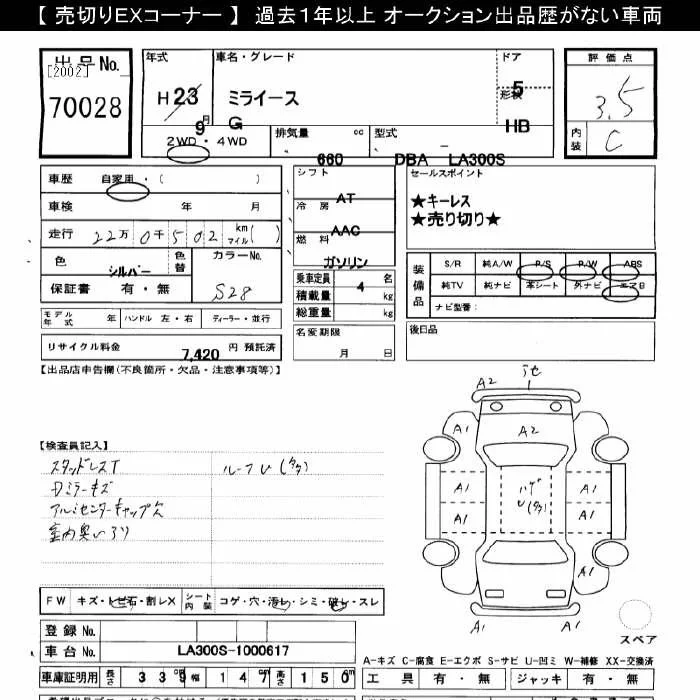 【 売切りEXコーナー 】 過去1年以上 オークション出品歴がない車両
出品No.
[2002]
70028
年式
H 23
9月
車名・グレード
ミライース
G
ドア
5
形状
HB
2WD・4WD
排気量 cc
660
型式
DBA LA300S
評価点
3.5
内装 C
車歴 自家用・( )
車検 年 月
走行 22万0千502 km マイル( )
色 シルバー 色替 カラーNo. S28
保証書 有・無
シフト AT
冷房 AAC
燃料 ガソリン
乗車定員 4 名
積載量 kg
総重量 kg
セールスポイント
★キーレス
★売り切り★
装備品
S/R 純A/W P/S P/W ABS
純TV 純ナビ 本シート 外ナビ エアB
ナビ型番:
モデル年式 年 ハンドル 左・右 ディーラー・並行
名変期限 月 日
後日品
リサイクル料金 7,420 円 預託済
【出品店申告欄(不良箇所・欠品・注意事項等)】
【検査員記入】
スタッドレスT
Dミラーキズ
アルミセンターキャップ欠
ルーフU(タタ)
A2
A1
A2
A1
A1
A1
A1
A1
ハゲ
U(タタ)
A1
A1
スペア
FW キズ・トビ石・割レX シート内装 コゲ・穴・汚レ・シミ・破レ・スレ
登録No.
車台No. LA300S-1000617
車庫証明用 長さ 339 幅 147 高さ 150
A-キズ C-腐食 E-エクボ S-サビ U-凹ミ W-補修 XX-交換済
工具 有・無 ジャッキ 有・無